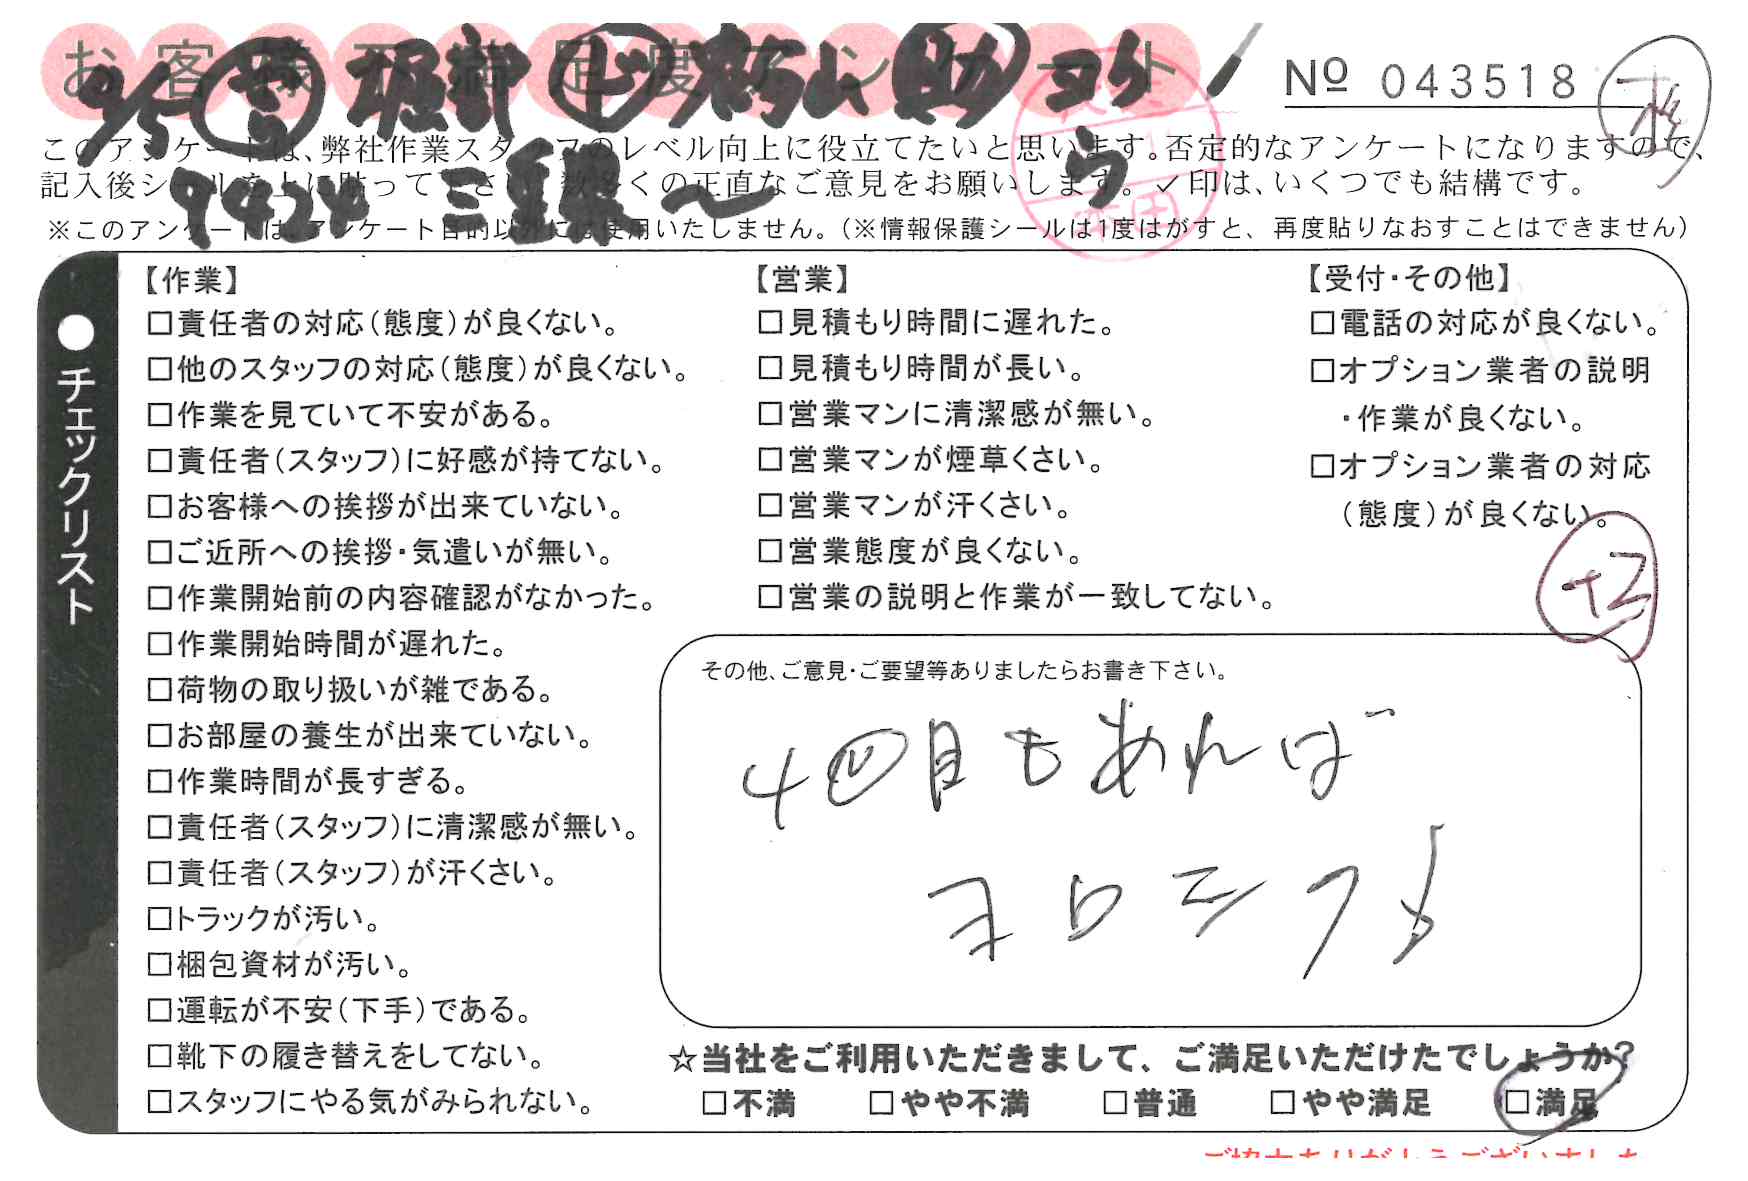 お客様不満足度アンケート
No 043518
このアンケートは、弊社作業スタッフのレベル向上に役立てたいと思います。否定的なアンケートになりますので、
記入後シールを上に貼って下さい。数多くの正直なご意見をお願いします。✓印は、いくつでも結構です。
※このアンケートは、アンケート目的以外には使用いたしません。(※情報保護シールは1度はがすと、再度貼りなおすことはできません)
●チェックリスト
【作業】
□責任者の対応(態度)が良くない。
□他のスタッフの対応(態度)が良くない。
□作業を見ていて不安がある。
□責任者(スタッフ)に好感が持てない。
□お客様への挨拶が出来ていない。
□ご近所への挨拶・気遣いが無い。
□作業開始前の内容確認がなかった。
□作業開始時間が遅れた。
□荷物の取り扱いが雑である。
□お部屋の養生が出来ていない。
□作業時間が長すぎる。
□責任者(スタッフ)に清潔感が無い。
□責任者(スタッフ)が汗くさい。
□トラックが汚い。
□梱包資材が汚い。
□運転が不安(下手)である。
□靴下の履き替えをしてない。
□スタッフにやる気がみられない。
【営業】
□見積もり時間に遅れた。
□見積もり時間が長い。
□営業マンに清潔感が無い。
□営業マンが煙草くさい。
□営業マンが汗くさい。
□営業態度が良くない。
□営業の説明と作業が一致してない。
【受付・その他】
□電話の対応が良くない。
□オプション業者の説明
・作業が良くない。
□オプション業者の対応
(態度)が良くない。
+2
その他、ご意見・ご要望等ありましたらお書き下さい。
4回目もあれば
ヨロシク♪
☆当社をご利用いただきまして、ご満足いただけたでしょうか?
□不満 □やや不満 □普通 □やや満足 □満足
ご協力ありがとうございました